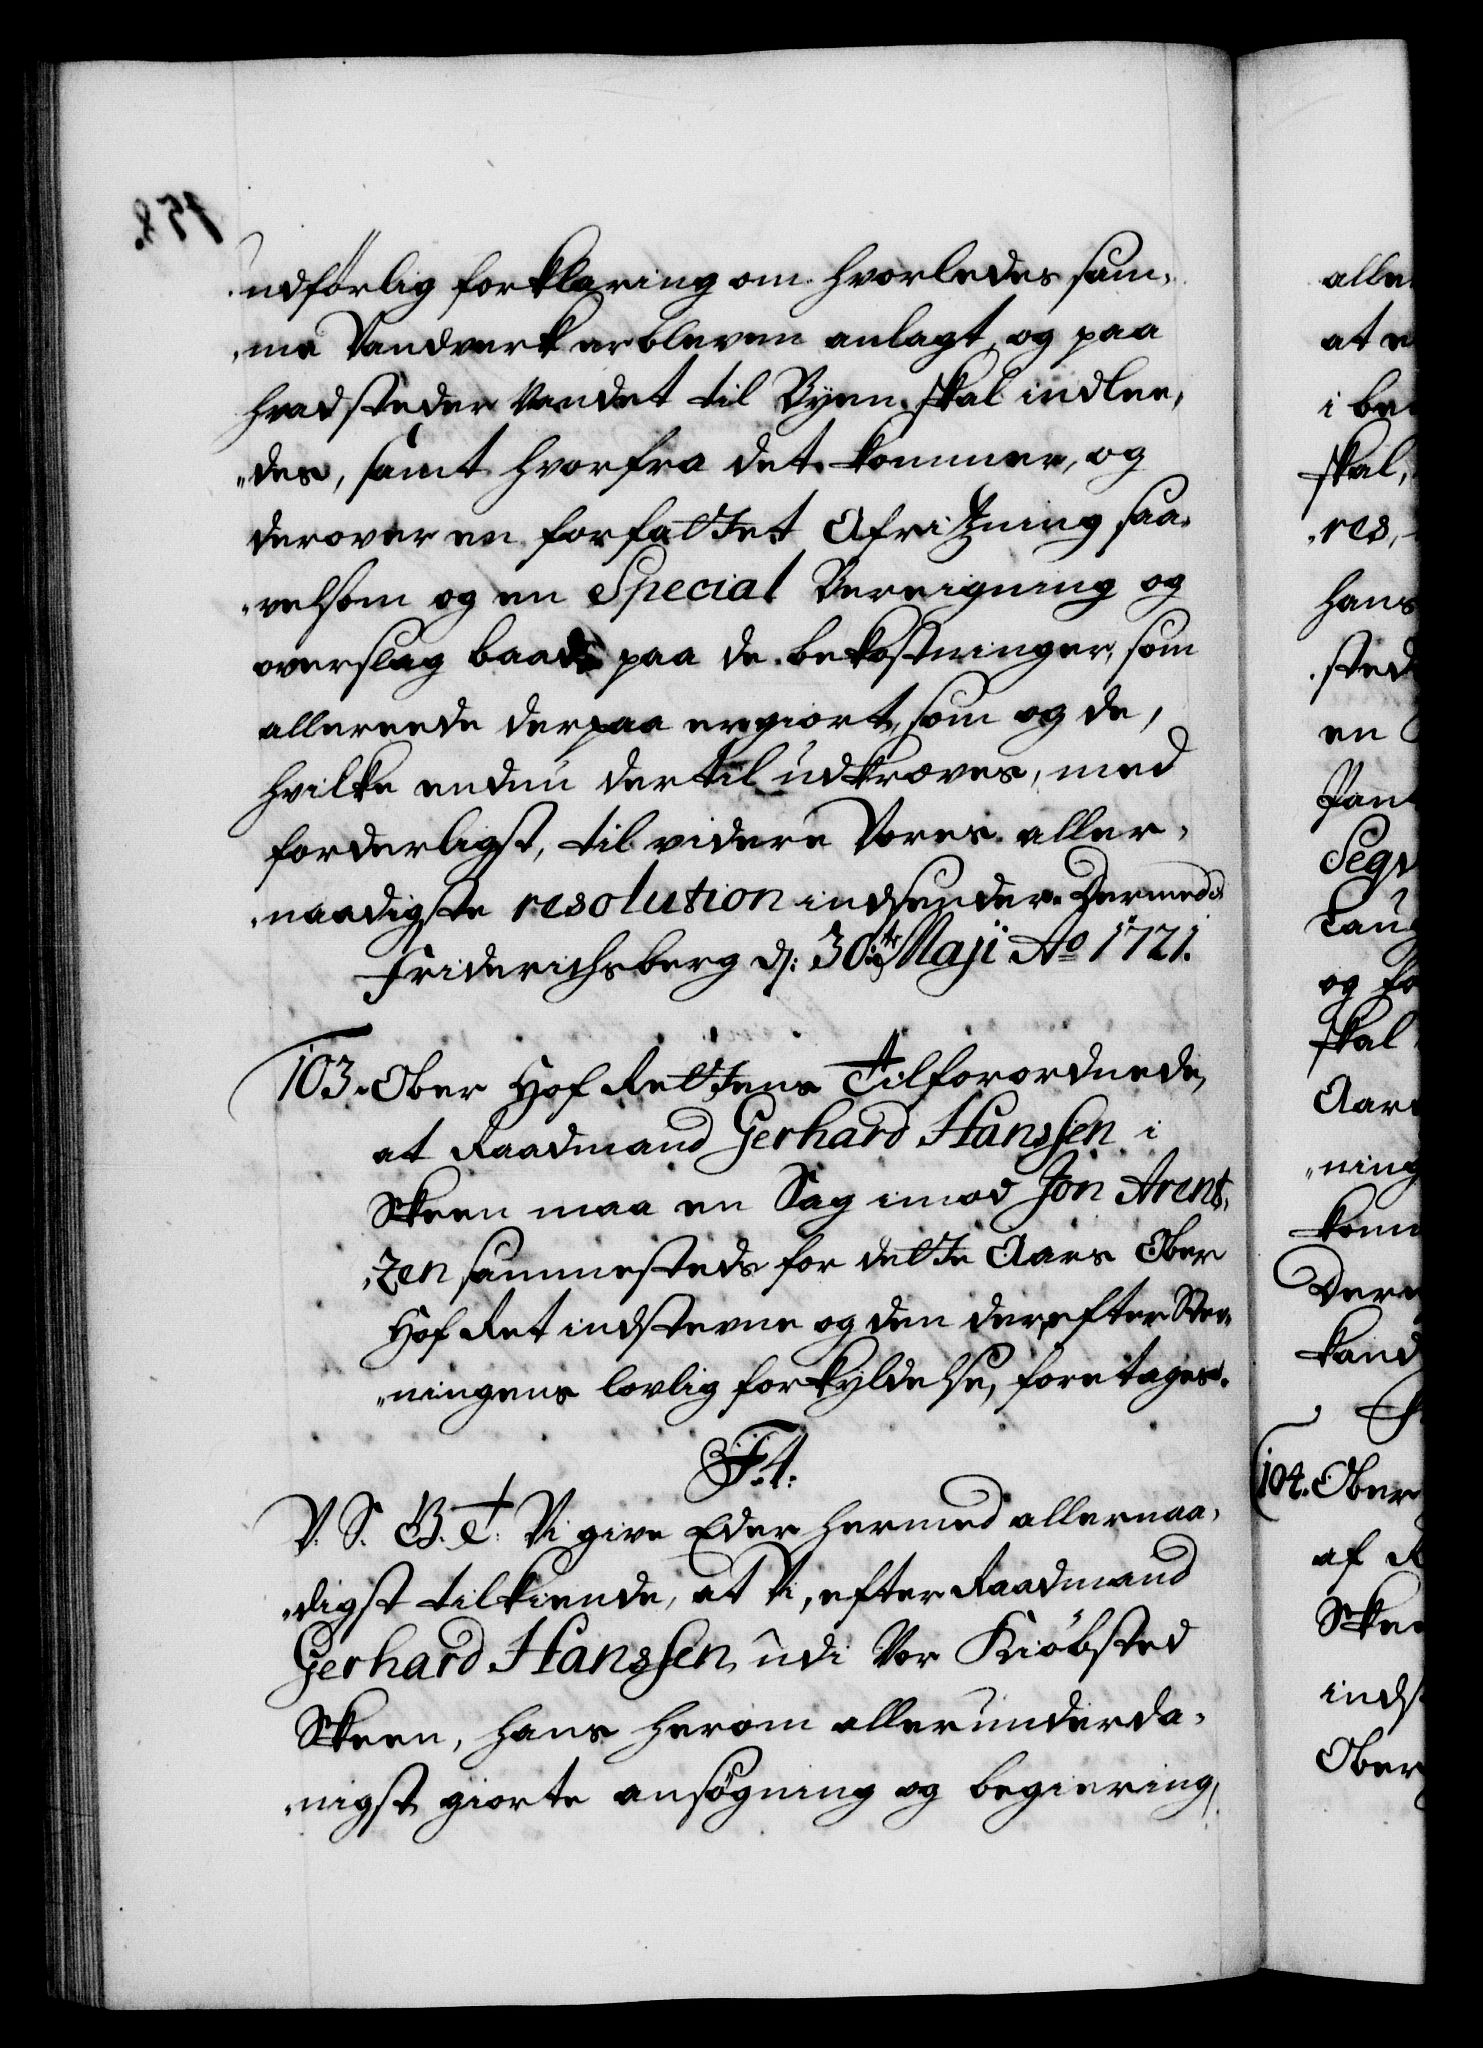 udførlig forklaring om hvorledes sam-
me Vandverk er bleven anlagt, og paa
hvad steder Vandet til Byen skal indlee-
des, samt hvorfra det kommer, og
derover en forfattet Afritzning saa-
velsom og en Special Beregning og
overslag baade paa de bekostninger, som
allereede derpaa er giort, som og de,
hvilke endnu dertil udkræves, med
forderligst, til videre Vores aller-
naadigste resolution indsender. Dermed
Friderichsberg d: 30te Maji Ao 1721.
103. Ober Hof Rettens Tilforordnede,
at Raadmand Gerhard Hanssen i
Skeen maa en Sag imod Jon Arent-
zen sammesteds for dette Aars Ober
Hof Ret indstevne og den derefter Stev-
ningens lovlig forkyndelse, foretages.
F. 4.
V. S. G. T. Vi give Eder hermed allernaa-
digst tilkiende, at Vi, efter Raadmand
Gerhard Hanssen, udi Vor Kiøbsted
Skeen, hans herom allerunderda-
nigst giorte ansøgning og begiering,
alle
at
i be
skal,
res,
hans
sted
en
Pant
Segv
Laug
og fo
skal
Aar
ning
kom
Dere
kand
104. Ober
af R
Skee
indst
Ober